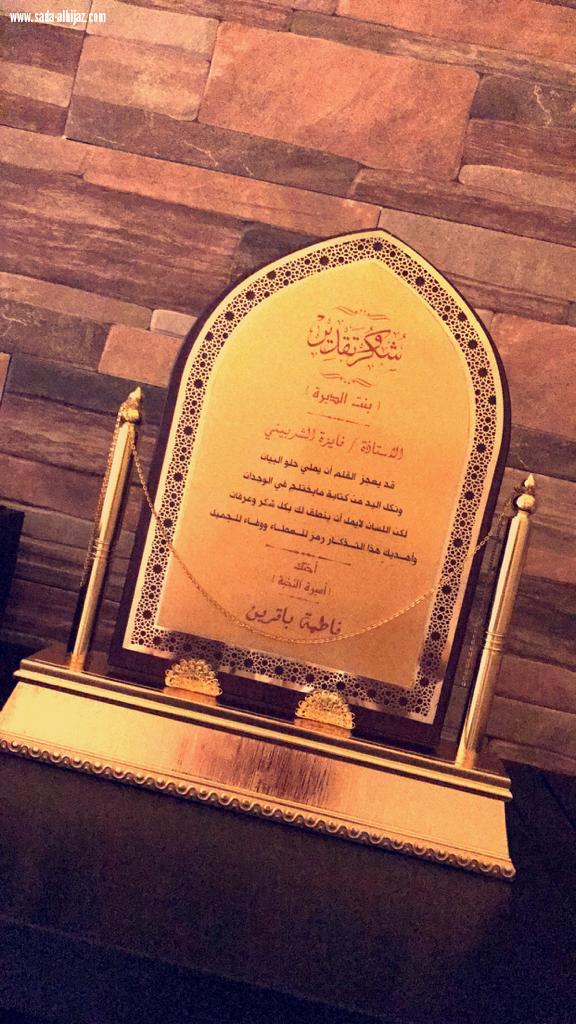 www.sada-alhijaz.com
شكر وتقدير
( بنت الديرة )
الاستاذة / فايزة الشربيني
قد يعجز القلم أن يملي حلو البيان
وتكل اليد من كتابة مايختلج في الوجدان
لكن اللسان لايمل أن ينطق لك بكل شكر وعرفان
وأهديك هذا التذكار رمز للعطاء ووفاء للجميل
أختك
( أميرة النخبة )
فاطمة باقرين